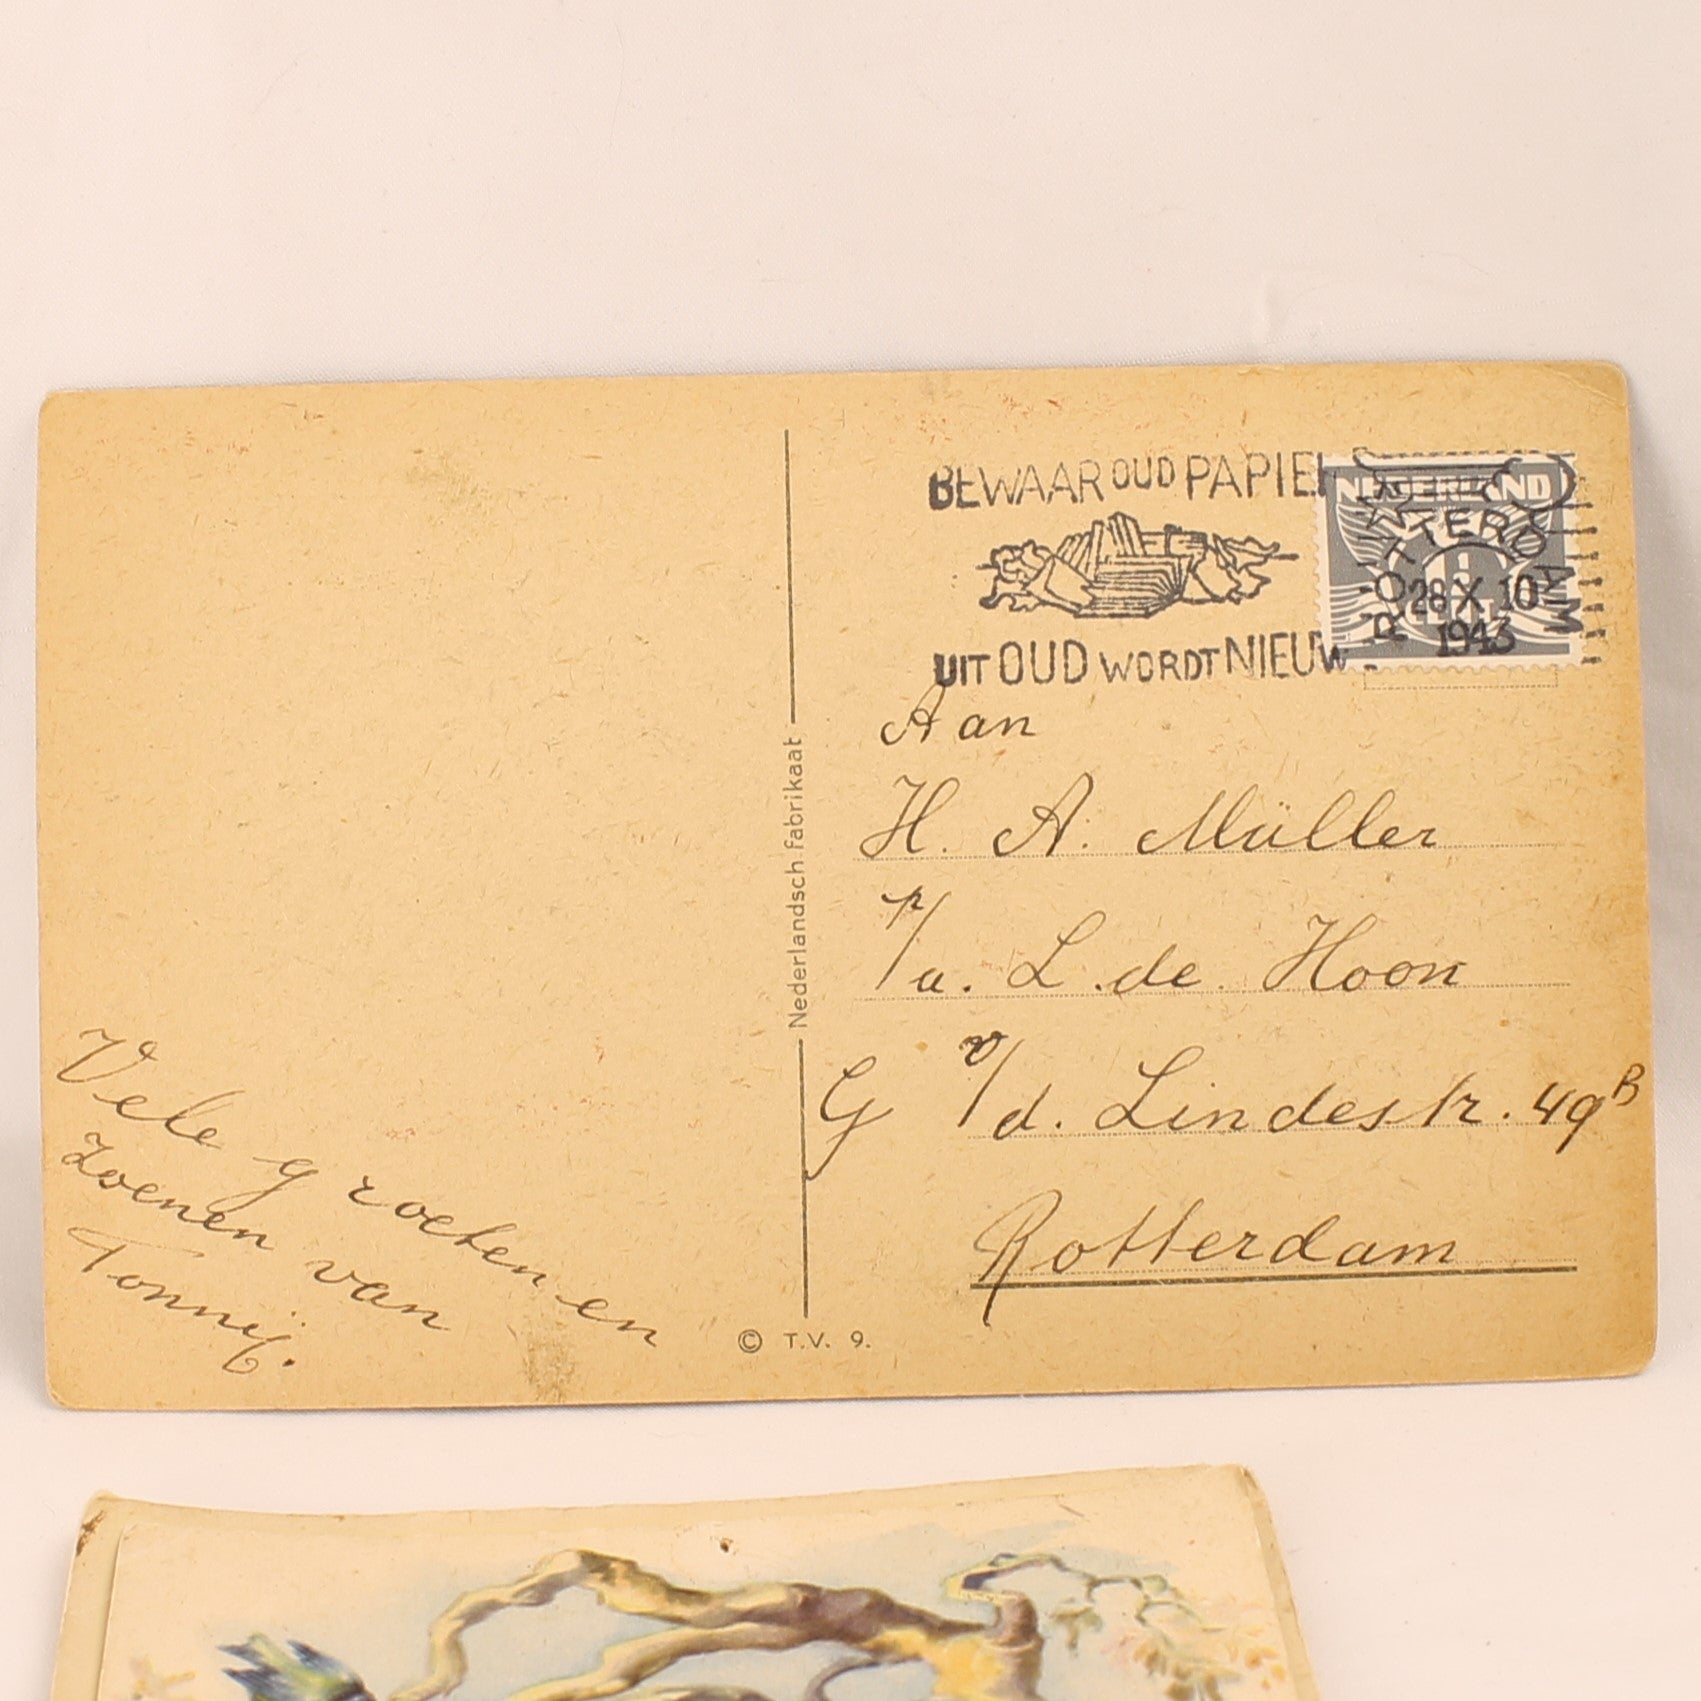 BEWAAR OUD PAPIER
UIT OUD WORDT NIEUW
NEDERLAND
ROTTERDAM
28 X 10
1943
Aan
H. A. Müller
p/a. L. de Hoon
G v/d. Lindestr. 49B
Rotterdam
Nederlandsch fabrikaat
Vele groeten en
zoenen van
Tonny.
© T.V. 9.